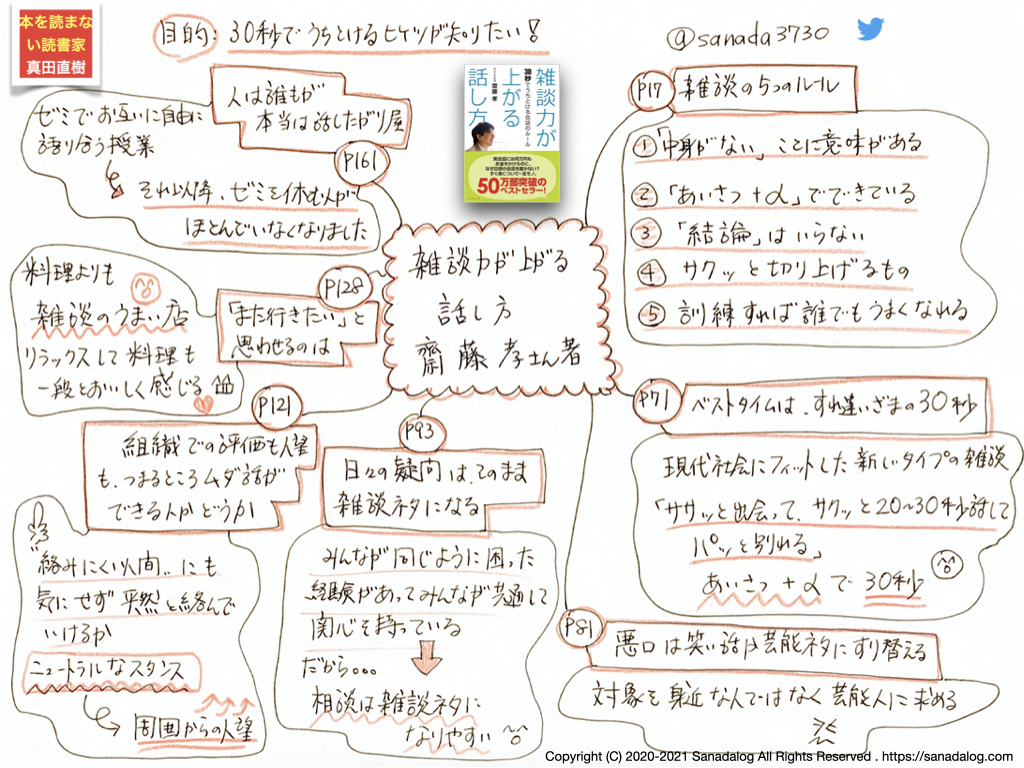 本を読まな
い読書家
真田直樹
目的: 30秒でうちとけるヒケツが知りたい!
@sanada3730
雑談力が
上がる
話し方
30秒でうちとける会話のルール
齋藤 孝
英会話には何万円も
お金をかけるのに、
なぜ日頃の会話を磨かない?
すぐ身について一生モノ。
50万部突破の
ベストセラー!
雑談力が上がる
話し方
齋藤孝さん著
P17
雑談の5つのルール
①「中身がない」ことに意味がある
②「あいさつ+α」でできている
③「結論」はいらない
④ サクッと切り上げるもの
⑤ 訓練すれば誰でもうまくなれる
P71
ベストタイムは、すれ違いざまの30秒
現代社会にフィットした新しいタイプの雑談
「ササッと出会って、サクッと20~30秒話して
パッと別れる」
あいさつ+αで30秒
P81
悪口は笑い話や芸能ネタにすり替える
対象を身近な人ではなく芸能人に求める
P93
日々の疑問は、そのまま
雑談ネタになる
みんなが同じように困った
経験があってみんなが共通して
関心を持っている
だから。。。
相談は雑談ネタに
なりやすい
P121
組織での評価も人望
も、つまるところムダ話が
できる人かどうか
絡みにくい人間‥にも
気にせず平然と絡んで
いけるか
ニュートラルなスタンス
周囲からの人望
P128
「また行きたい」と
思わせるのは
料理よりも
雑談のうまい店
リラックスして料理も
一段とおいしく感じる
P161
人は誰もが
本当は話したがり屋
ゼミでお互いに自由に
語り合う授業
それ以降、ゼミを休む人が
ほとんどいなくなりました
Copyright (C) 2020-2021 Sanadalog All Rights Reserved . https://sanadalog.com